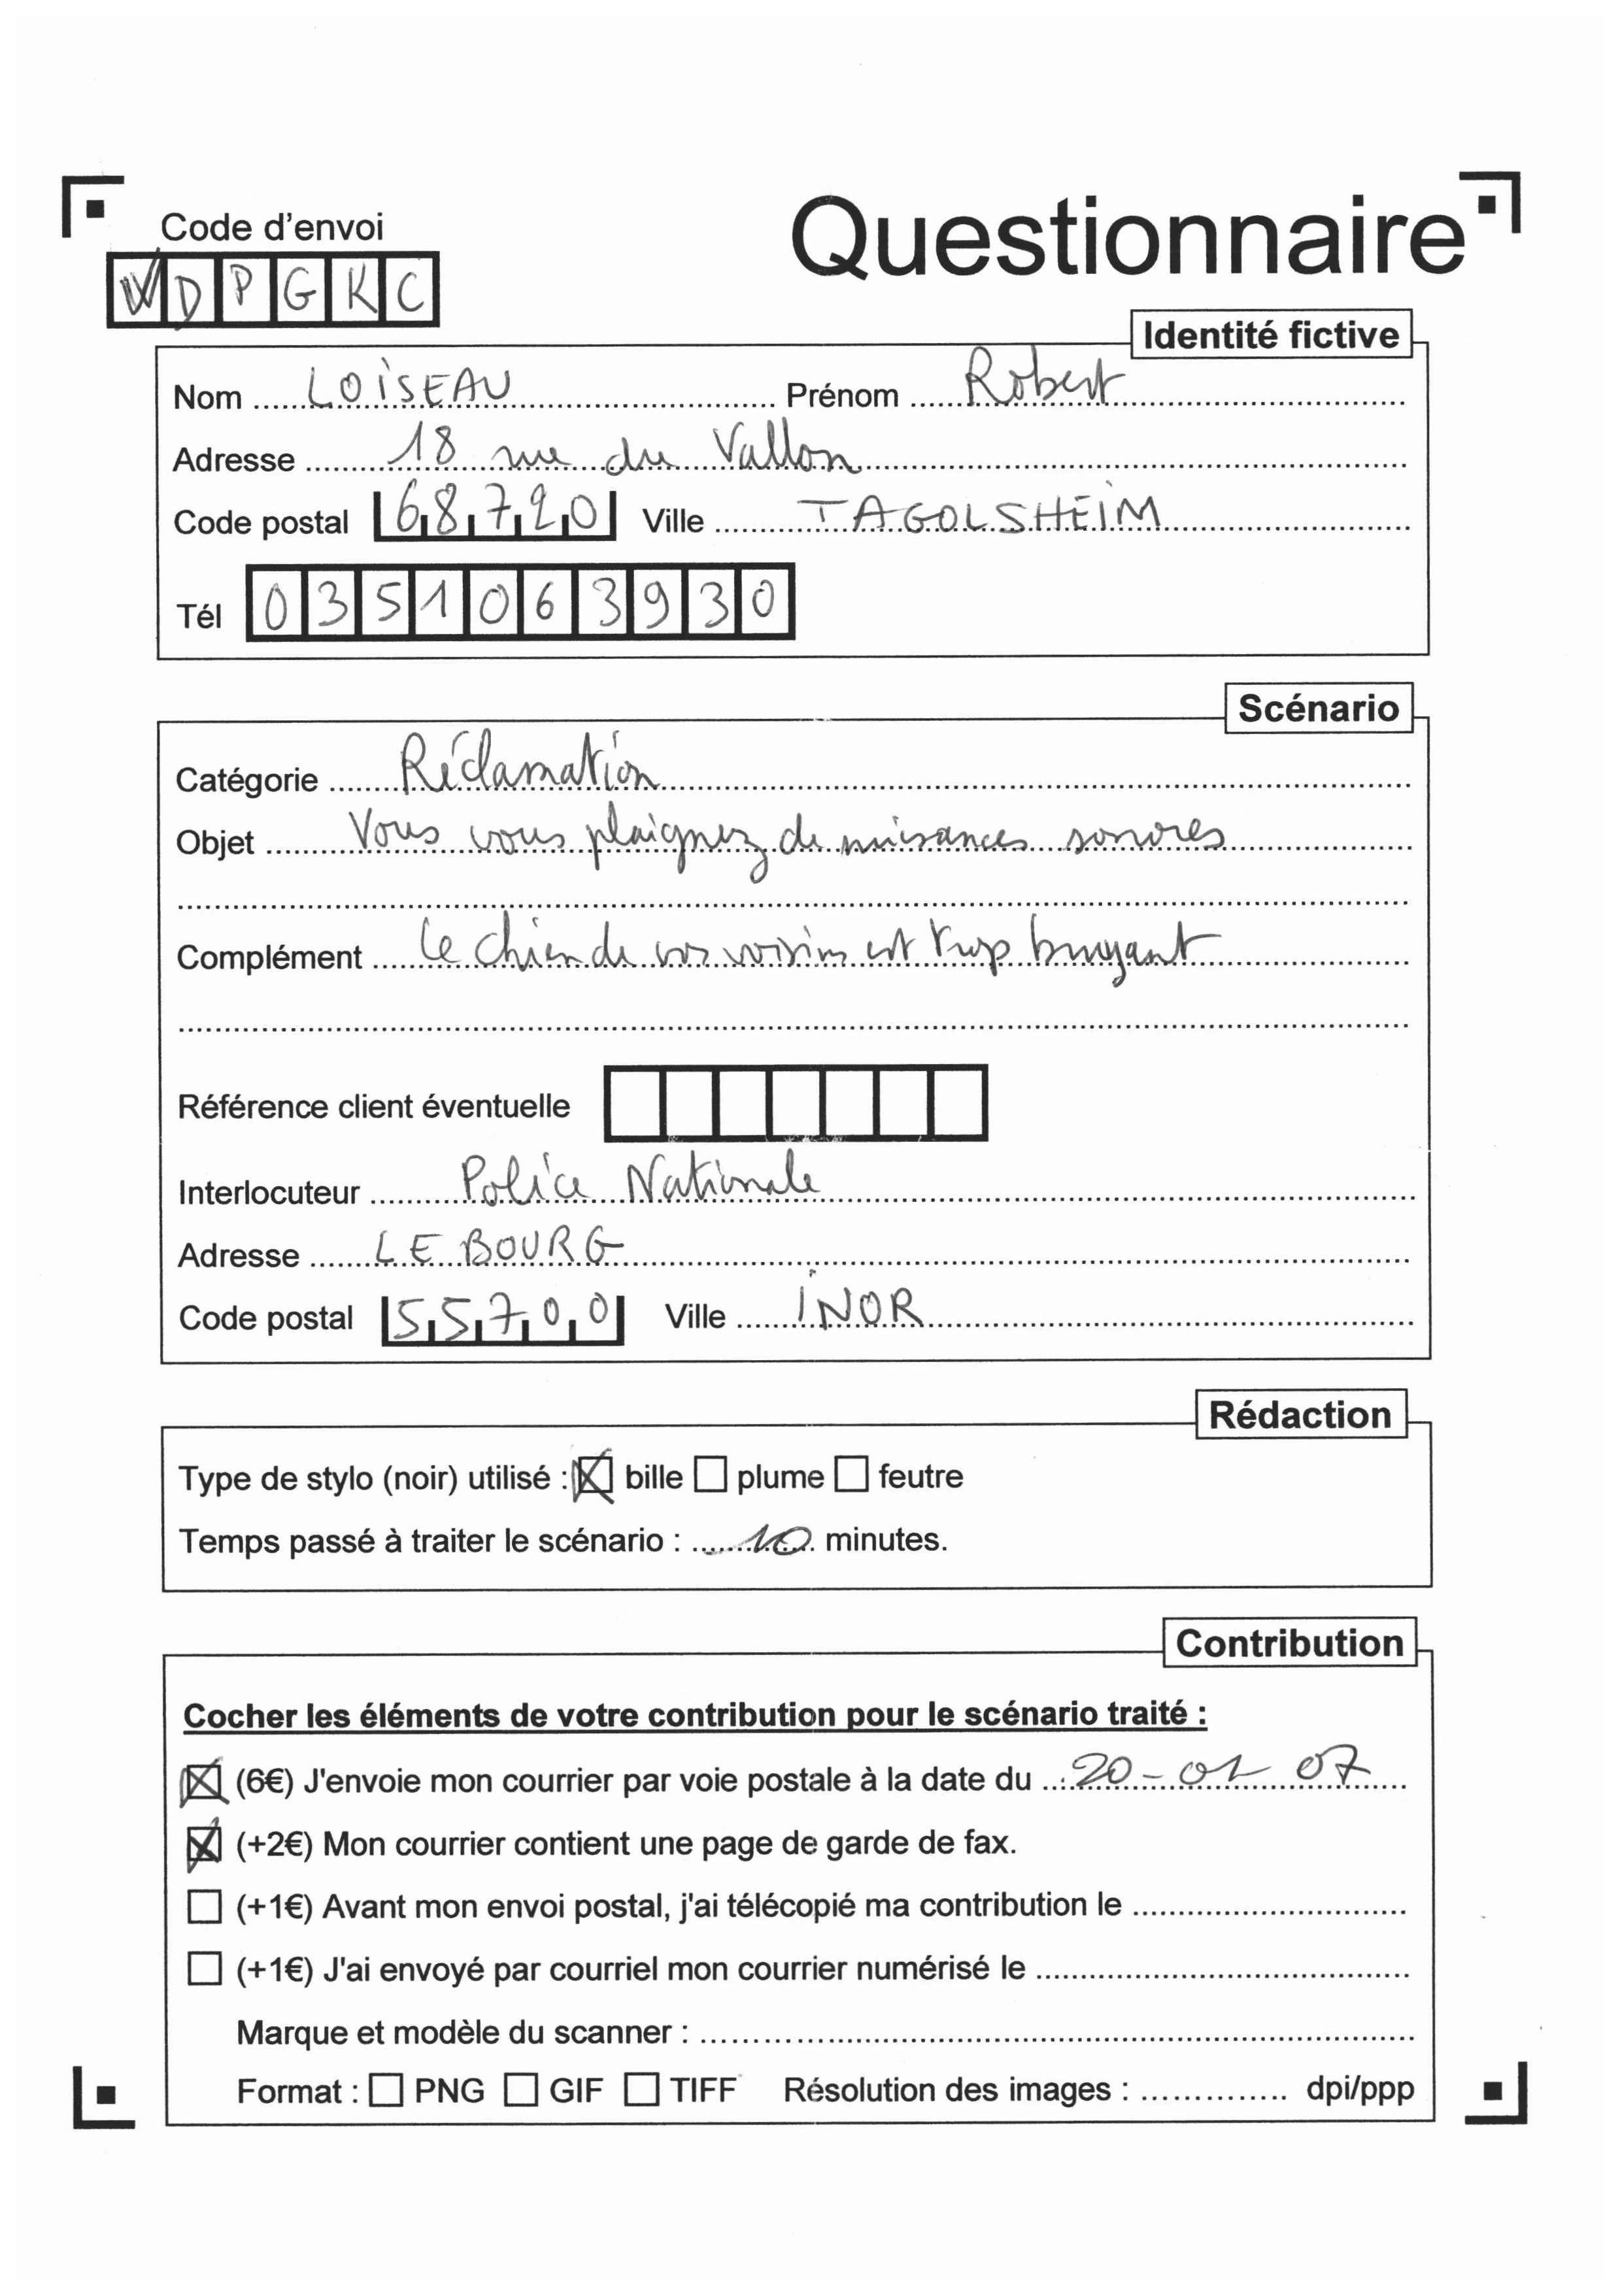 Questionnaire
Code d'envoi
WDPGKC
Identité fictive
Nom LOISEAU Prénom Robert
Adresse 18 rue du Vallon
Code postal 68720 Ville TAGOLSHEIM
Tél 0351063930
Scénario
Catégorie Réclamation
Objet Vous vous plaignez de nuisances sonores
Complément Le chien de vos voisins est trop bruyant
Référence client éventuelle
Interlocuteur Police Nationale
Adresse LE BOURG
Code postal 55700 Ville INOR
Rédaction
Type de stylo (noir) utilisé : bille plume feutre
Temps passé à traiter le scénario : 10 minutes.
Contribution
Cocher les éléments de votre contribution pour le scénario traité :
(6€) J'envoie mon courrier par voie postale à la date du 20-01 07
(+2€) Mon courrier contient une page de garde de fax.
(+1€) Avant mon envoi postal, j'ai télécopié ma contribution le
(+1€) J'ai envoyé par courriel mon courrier numérisé le
Marque et modèle du scanner :
Format : PNG GIF TIFF Résolution des images : dpi/ppp